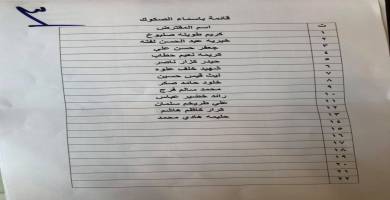 قائمة باسماء الصكوك
ت اسم المقترض
١ كريم طوينه صليوخ
٢ خيريه عبد الحسن لفته
٣ جعفر حسن علي
٤ كريمه نعيم حطاب
٥ حيدر كزار ناصر
٦ شهيد خلف علوه
٧ ليث قيس حسين
٨ خلود حامد صكر
٩ محمد سالم فرج
١٠ رائد خضير عباس
١١ علي طريخم سلمان
١٢ كرار كاظم هاشم
١٣ حليمه هادي محمد
١٤
١٥
١٦
١٧
١٨
١٩
٢٠
٢١
٢٢